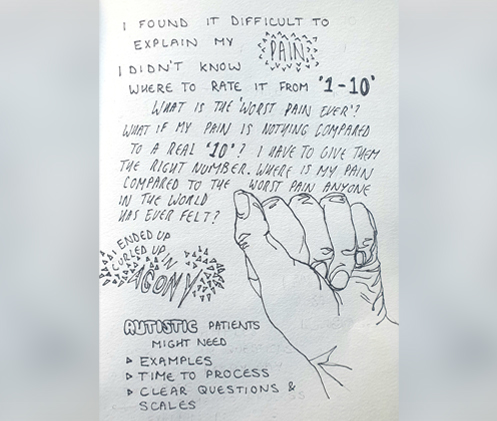 I FOUND IT DIFFICULT TO
EXPLAIN MY PAIN
I DIDN'T KNOW
WHERE TO RATE IT FROM '1-10'
WHAT IS THE 'WORST PAIN EVER'?
WHAT IF MY PAIN IS NOTHING COMPARED
TO A REAL '10'? I HAVE TO GIVE THEM
THE RIGHT NUMBER. WHERE IS MY PAIN
COMPARED TO THE WORST PAIN ANYONE
IN THE WORLD
HAS EVER FELT?
I ENDED UP
CURLED UP IN
AGONY
AUTISTIC PATIENTS
MIGHT NEED
▷ EXAMPLES
▷ TIME TO PROCESS
▷ CLEAR QUESTIONS &
SCALES